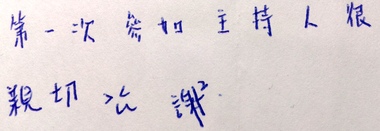 第一次參加主持人很
親切 謝²